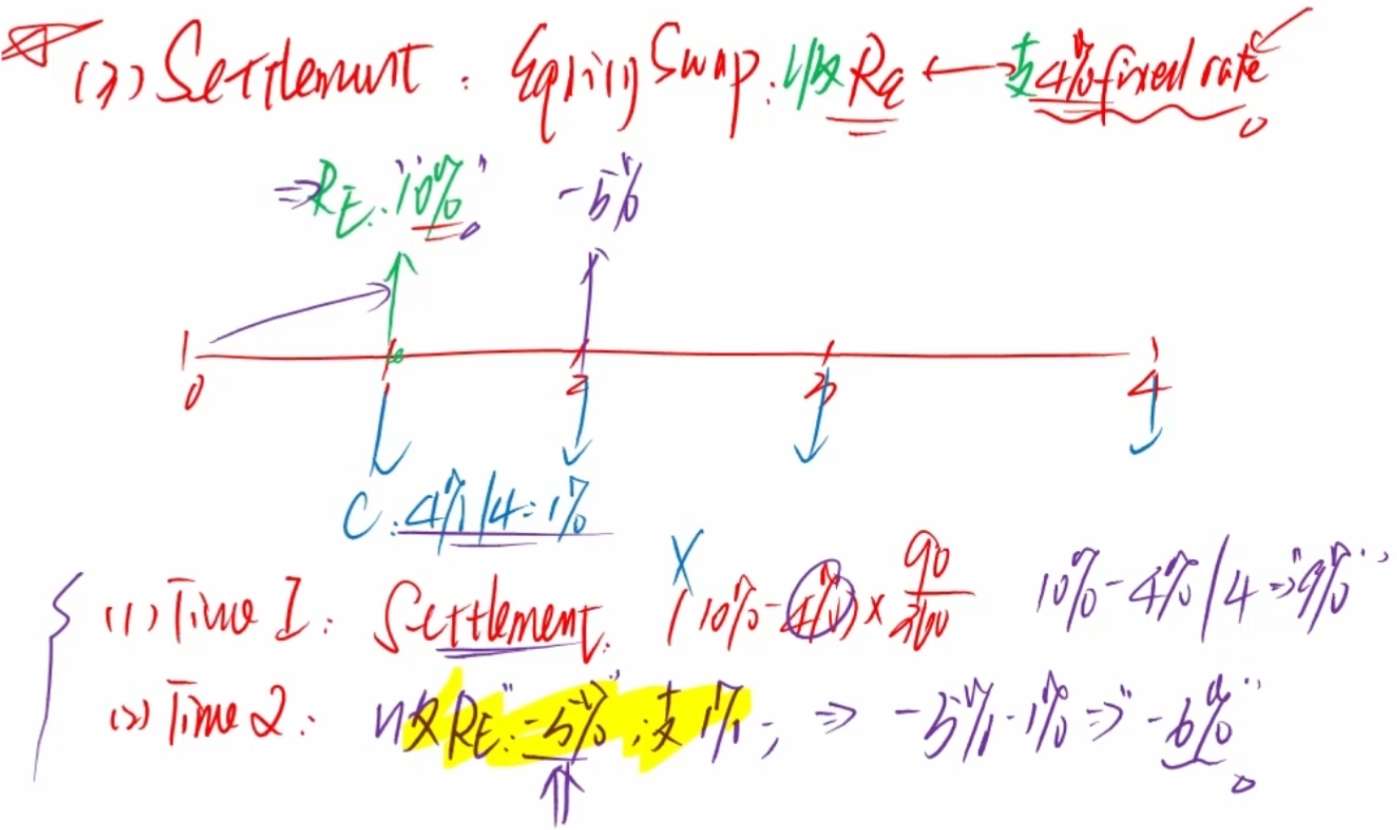 (3) Settlement : Equity Swap : 收 RE ←→ 支 4% fixed rate
⇒ RE : "10%" -5%
0 1 2 3 4
C : 4%/4 = 1%
(1) Time 1 : Settlement : X (10% - 4%) × 90/360 10% - 4%/4 ⇒ "9%"
(2) Time 2 : 收 RE : "-5%" ; 支 1% ; ⇒ -5% - 1% ⇒ "-6%"